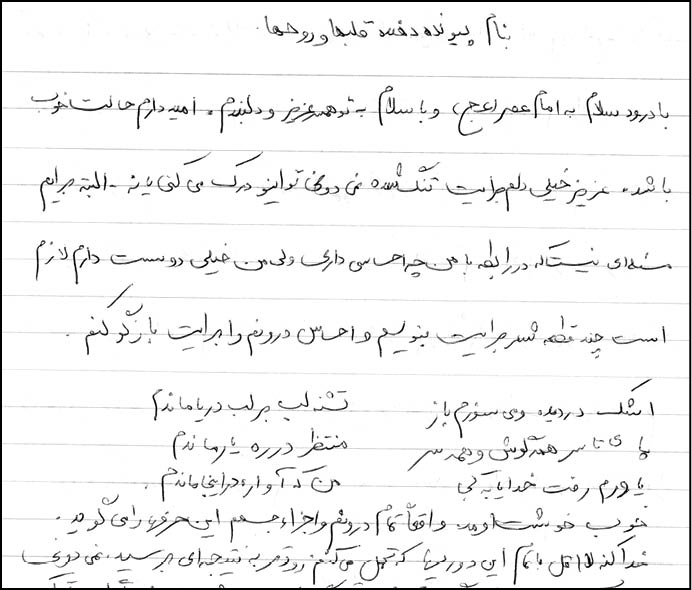 بنام پیوند دهنده قلبها و روحها.
با درود سلام به امام عصر (عج) و با سلام به تو همسر عزیز و دلبندم. امیدوارم حالت خوب
باشد. عزیز خیلی دلم برایت تنگ شده نمی دونی تو اینو درک می کنی یا نه. البته برایم
مسئله ای نیست که در رابطه با من چه احساسی داری ولی من خیلی دوست دارم لازم
است چند قطعه شعر برایت بنویسم و احساس درونم را برایت بازگو کنم.
اشک در دیده و می سوزم باز تشنه لب بر لب دریا ماندم
پای تا سر همه گوش و همه سر منتظر در ره یار ماندم
یاورم رفت خدایا به کجا من که آواره در اینجا ماندم.
خوب خوشت اومد. واقعاً تمام درونم و اجزاء جسمم این حرفها را می گوید.
خدا کنه لااقل با تمام این دوریها که تحمل می کنم زودتر به نتیجه ای برسد. نمی دونی